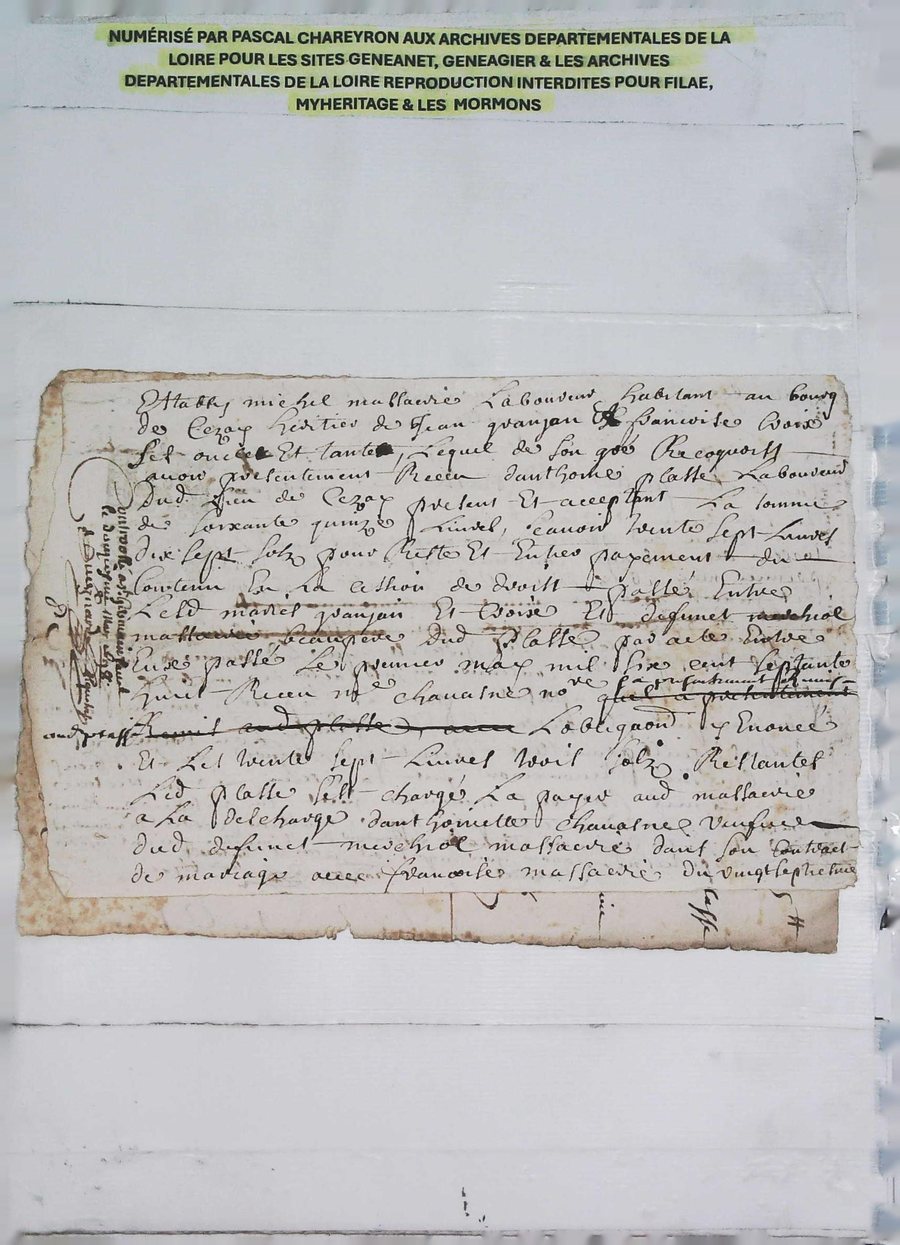 NUMÉRISÉ PAR PASCAL CHAREYRON AUX ARCHIVES DEPARTEMENTALES DE LA
LOIRE POUR LES SITES GENEANET, GENEAGIER & LES ARCHIVES
DEPARTEMENTALES DE LA LOIRE REPRODUCTION INTERDITES POUR FILAE,
MYHERITAGE & LES MORMONS
Estably michel massacrie Laboureur habitant au bourg
de Cezay heritier de Jean granjan & francoise Croix
ses oncle Et tante, Lequel de son gré
avoir presentement Receu danthoine platte Laboureur
dud lieu de Cezay present Et acceptant La somme
de soixante quinze Livres, scavoir trente sept Livres
dix sept solz pour Reste Et Entier payement du
Contenu En La cession de droitz passée Entre
Lesd mariés granjan Et Croix Et defunct merchiol
massacrie beaupere dud platte par acte Entre
Eux passé Le premier may mil six cent septante
huict Receu me chauasne nore
Lobligeond Enoncé
Et Les trente sept Livres trois solz Restantes
Led platte sest chargé La payer aud massacrie
a La descharge danthoinette chauasne veufve
dud defunct merchiol massacrie dans son Contract
de mariage avec francoise massacrie du vingtseptieme